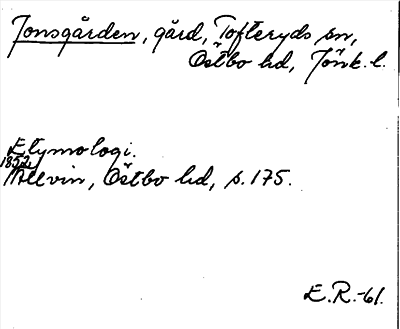 Jonsgården, gård, Tofteryds sn,
Östbo hd, Jönk. l.
Etymologi.
1852
Allvin, Östbo hd, s. 175.
E.R.-61.